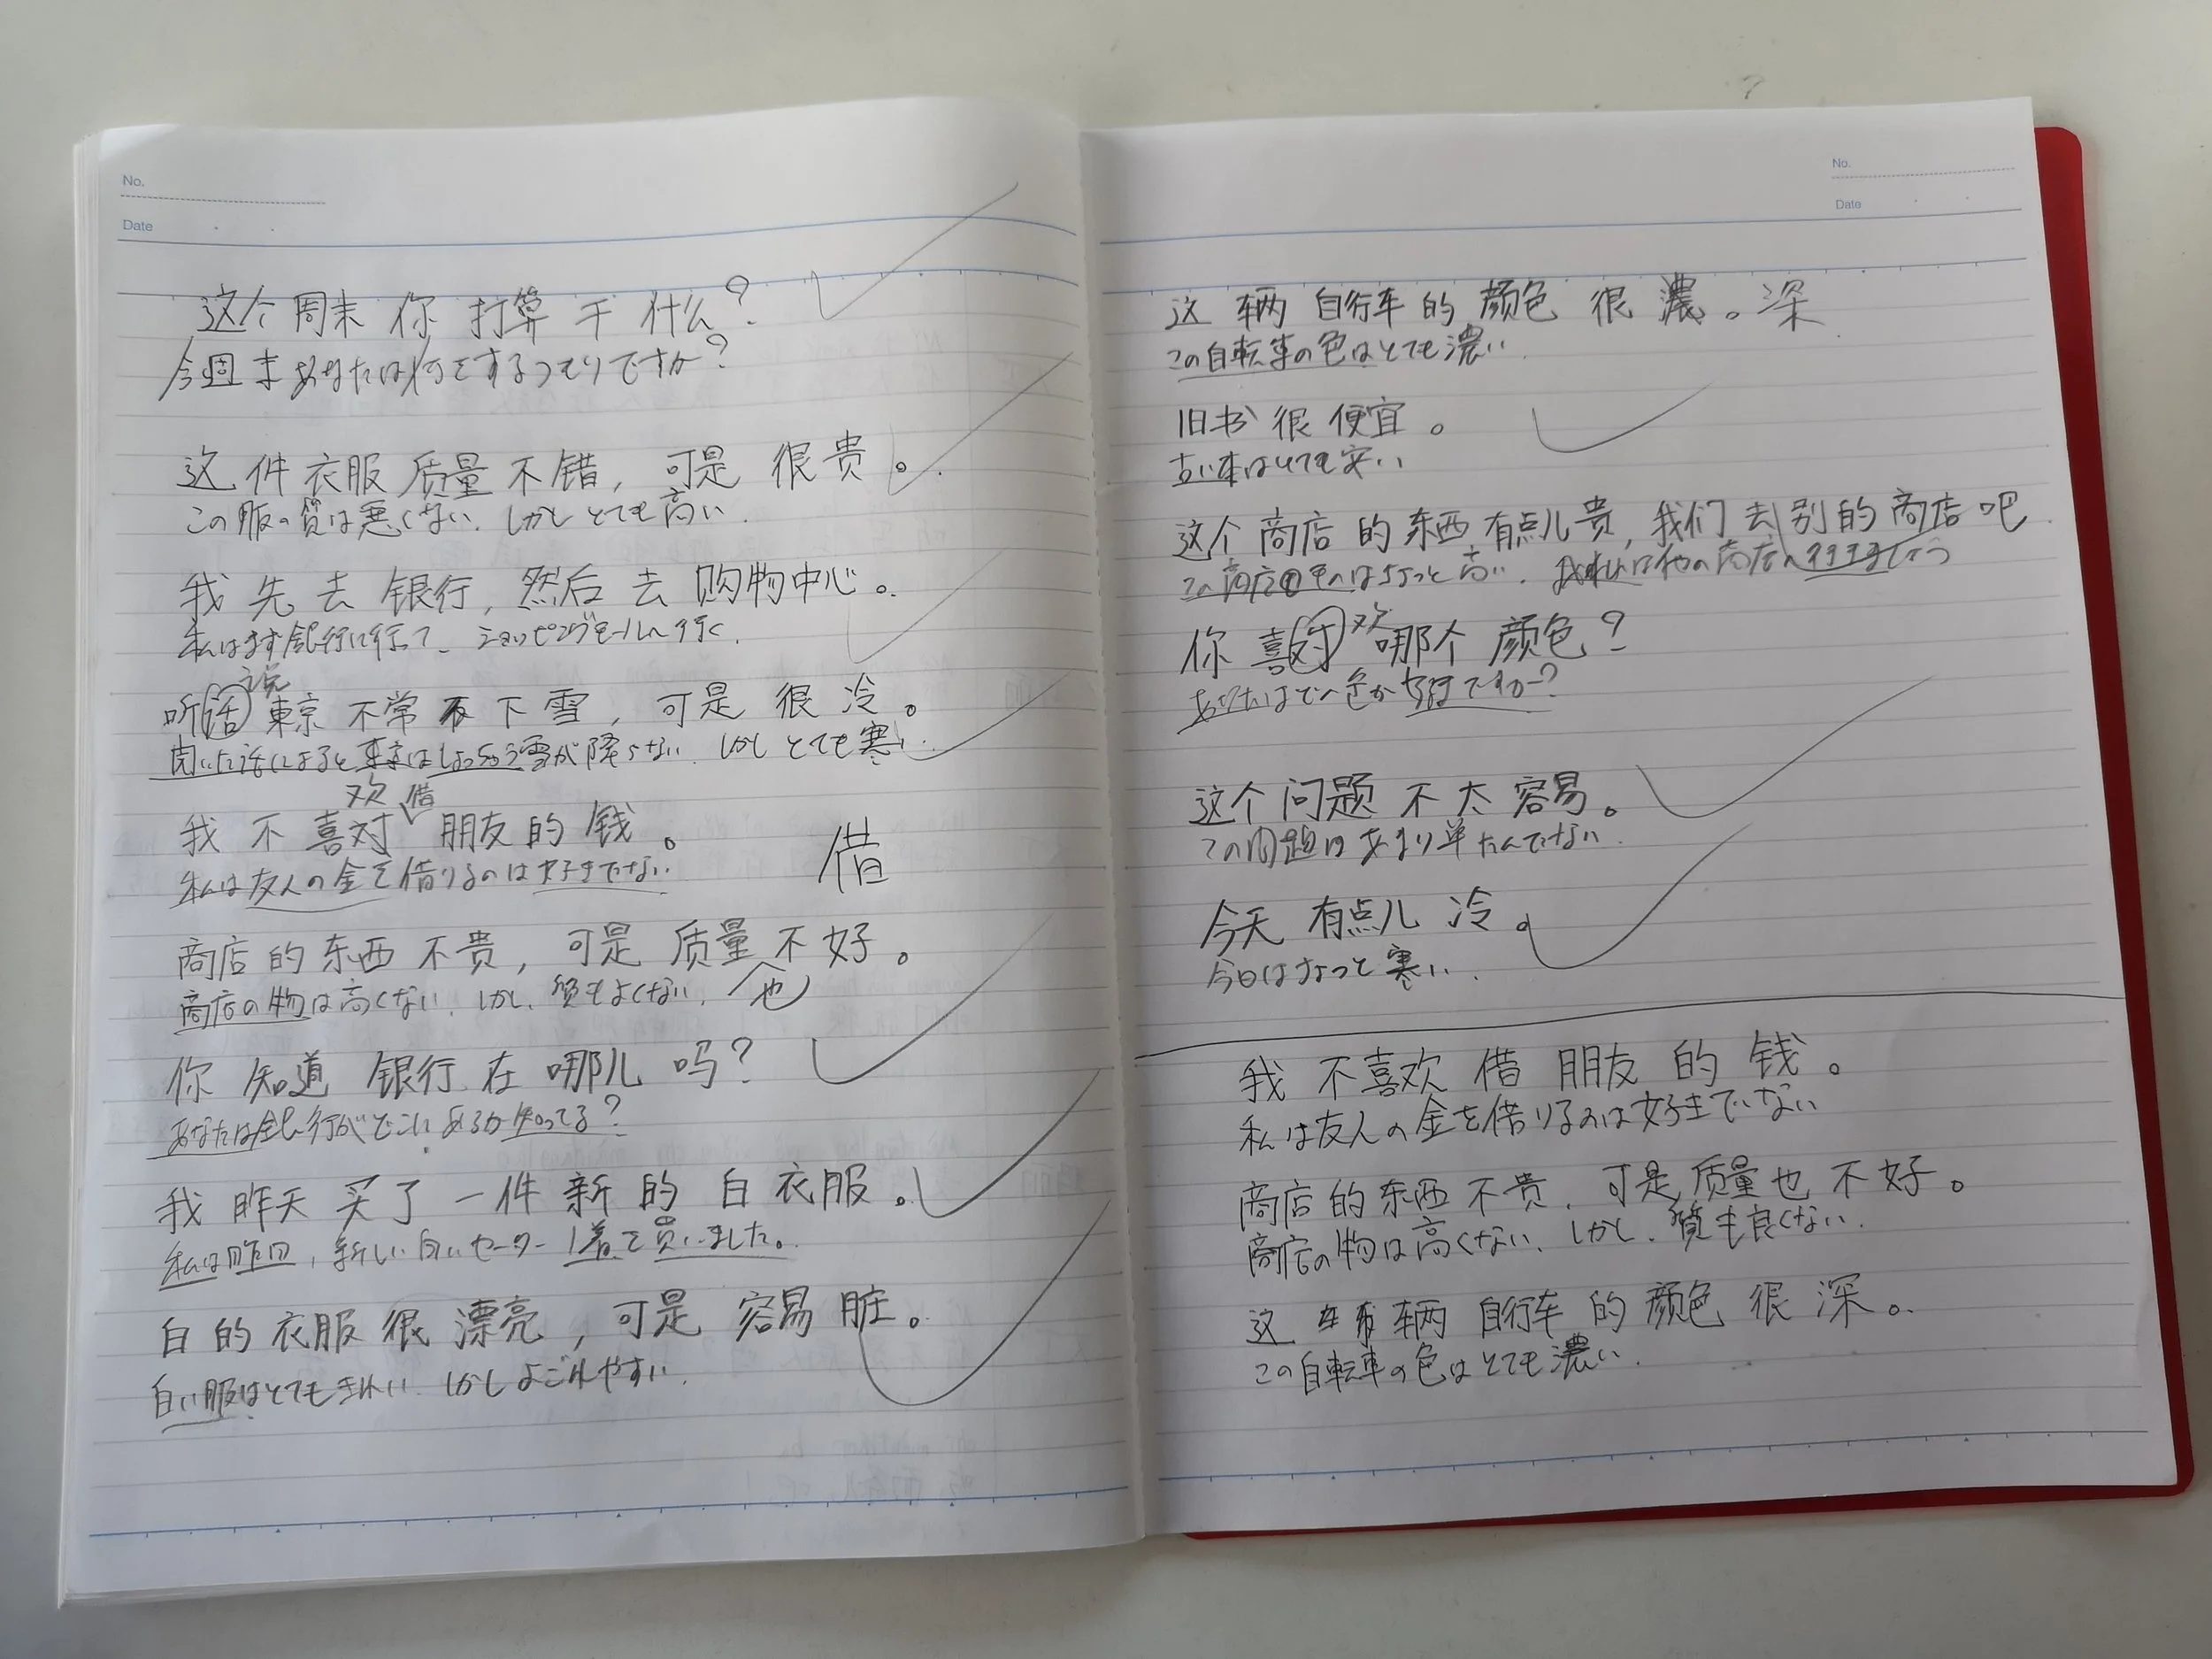 No.
Date
这个周末 你 打算 干 什么?
今週末あなたは何をするつもりですか?
这 件 衣服 质量 不 错, 可是 很 贵。
この服の質は悪くない、しかしとても高い
我 先 去 银行, 然后 去 购物中心。
私はまず銀行に行って、ショッピングモールへ行く
说
听话 東京 不常 下雪, 可是 很 冷。
聞いた話によると東京はしょっちゅう雪が降らない しかしとても寒い
欢 借
我 不 喜对 朋友 的 钱。
借
私は友人の金を借りるのは好きでない
商店 的 东西 不 贵, 可是 质量 不 好。
也
商店の物は高くない しかし、質もよくない
你 知道 银行 在 哪儿 吗?
あなたは銀行がどこにあるか知ってる?
我 昨天 买 了 一件 新 的 白 衣服。
私は昨日, 新しい白いセーター1着を買いました。
白 的 衣服 很 漂亮, 可是 容易 脏。
白い服はとてもきれい しかしよごれやすい
No.
Date
这 辆 自行车 的 颜色 很 濃。深
この自転車の色はとても濃い
旧书 很 便宜。
古い本はとても安い
这个 商店 的 东西 有点儿 贵, 我们 去 别的 商店 吧
この商店の はちょっと高い 他の商店へ行きましょう
欢
你 喜对 哪个 颜色?
あなたはどの色が好きですか?
这个 问题 不 太 容易。
この問題はあまりかんたんでない
今天 有点儿 冷。
今日はちょっと寒い
我 不喜欢 借 朋友 的 钱。
私は友人の金を借りるのは好きでない
商店 的 东西 不 贵, 可是 质量 也 不 好。
商店の物は高くない、しかし、質も良くない
这 辆 自行车 的 颜色 很 深。
この自転車の色はとても濃い